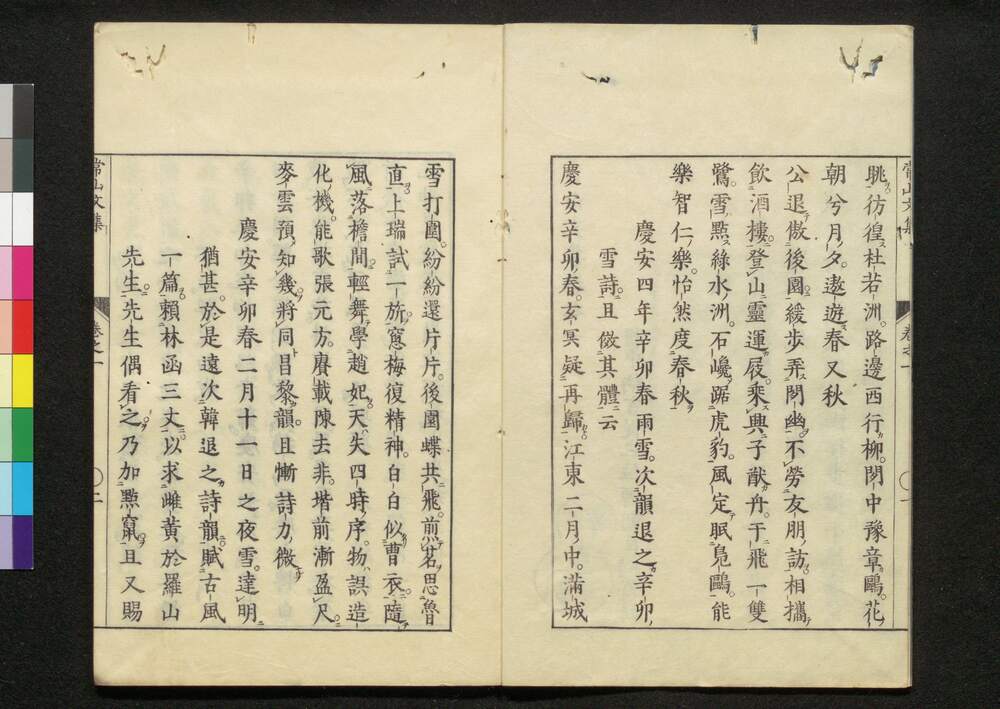 常山文集
卷之一
眺彷徨杜若洲路邊西行柳閉中豫章鷗花
朝兮月夕遨遊春又秋
公退傲後園緩歩弄閉幽不勞友朋訪相攜
飲酒樓登山靈運屐乘興子猷舟于飛一雙
鷺雪點綠水洲石巉踞虎豹風定眠鳧鷗能
樂智仁樂怡然度春秋
慶安四年辛卯春雨雪次韻退之辛卯
雪詩且傚其體云
慶安辛卯春玄冥疑再歸江東二月中滿城
雪打圍紛紛還片片後園蝶共飛煎茗思魯
直上瑞試一旂窓梅復精神白白似曹衣隨
風落檐間輕舞學趙妃天失四時序物誤造
化機能歌張元方賡載陳去非堦前漸盈尺
麥雲預知幾將同昌黎韻且慚詩力微
慶安辛卯春二月十一日之夜雪達明
猶甚於是遠次韓退之詩韻賦古風
一篇賴林函三丈以求雌黃於羅山
先生先生偶看之乃加點竄且又賜
常山文集
卷之一
二